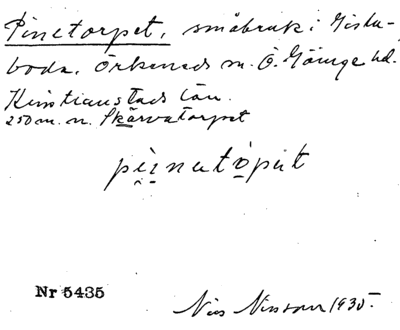 Pinetorpet, småbruk i Gislaboda, Örkeneds sn. Ö. Göinge hd.
Kristianstads län.
250 m. n. Skärvatorpet
pi̯inatòpət
Nr 5435
Nils Nilsson 1930